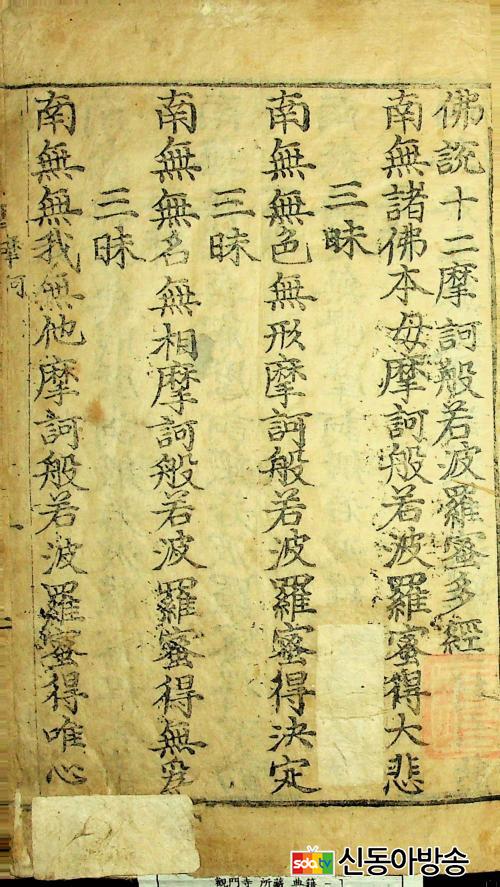 佛說十二摩訶般若波羅蜜多經
南無諸佛本母摩訶般若波羅蜜得大悲
三昧
南無無色無形摩訶般若波羅蜜得決定
三昧
南無無名無相摩訶般若波羅蜜得無
三昧
南無無我無他摩訶般若波羅蜜得唯心
摩訶
sda tv 신동아방송
觀門寺 所藏 典籍 - 1